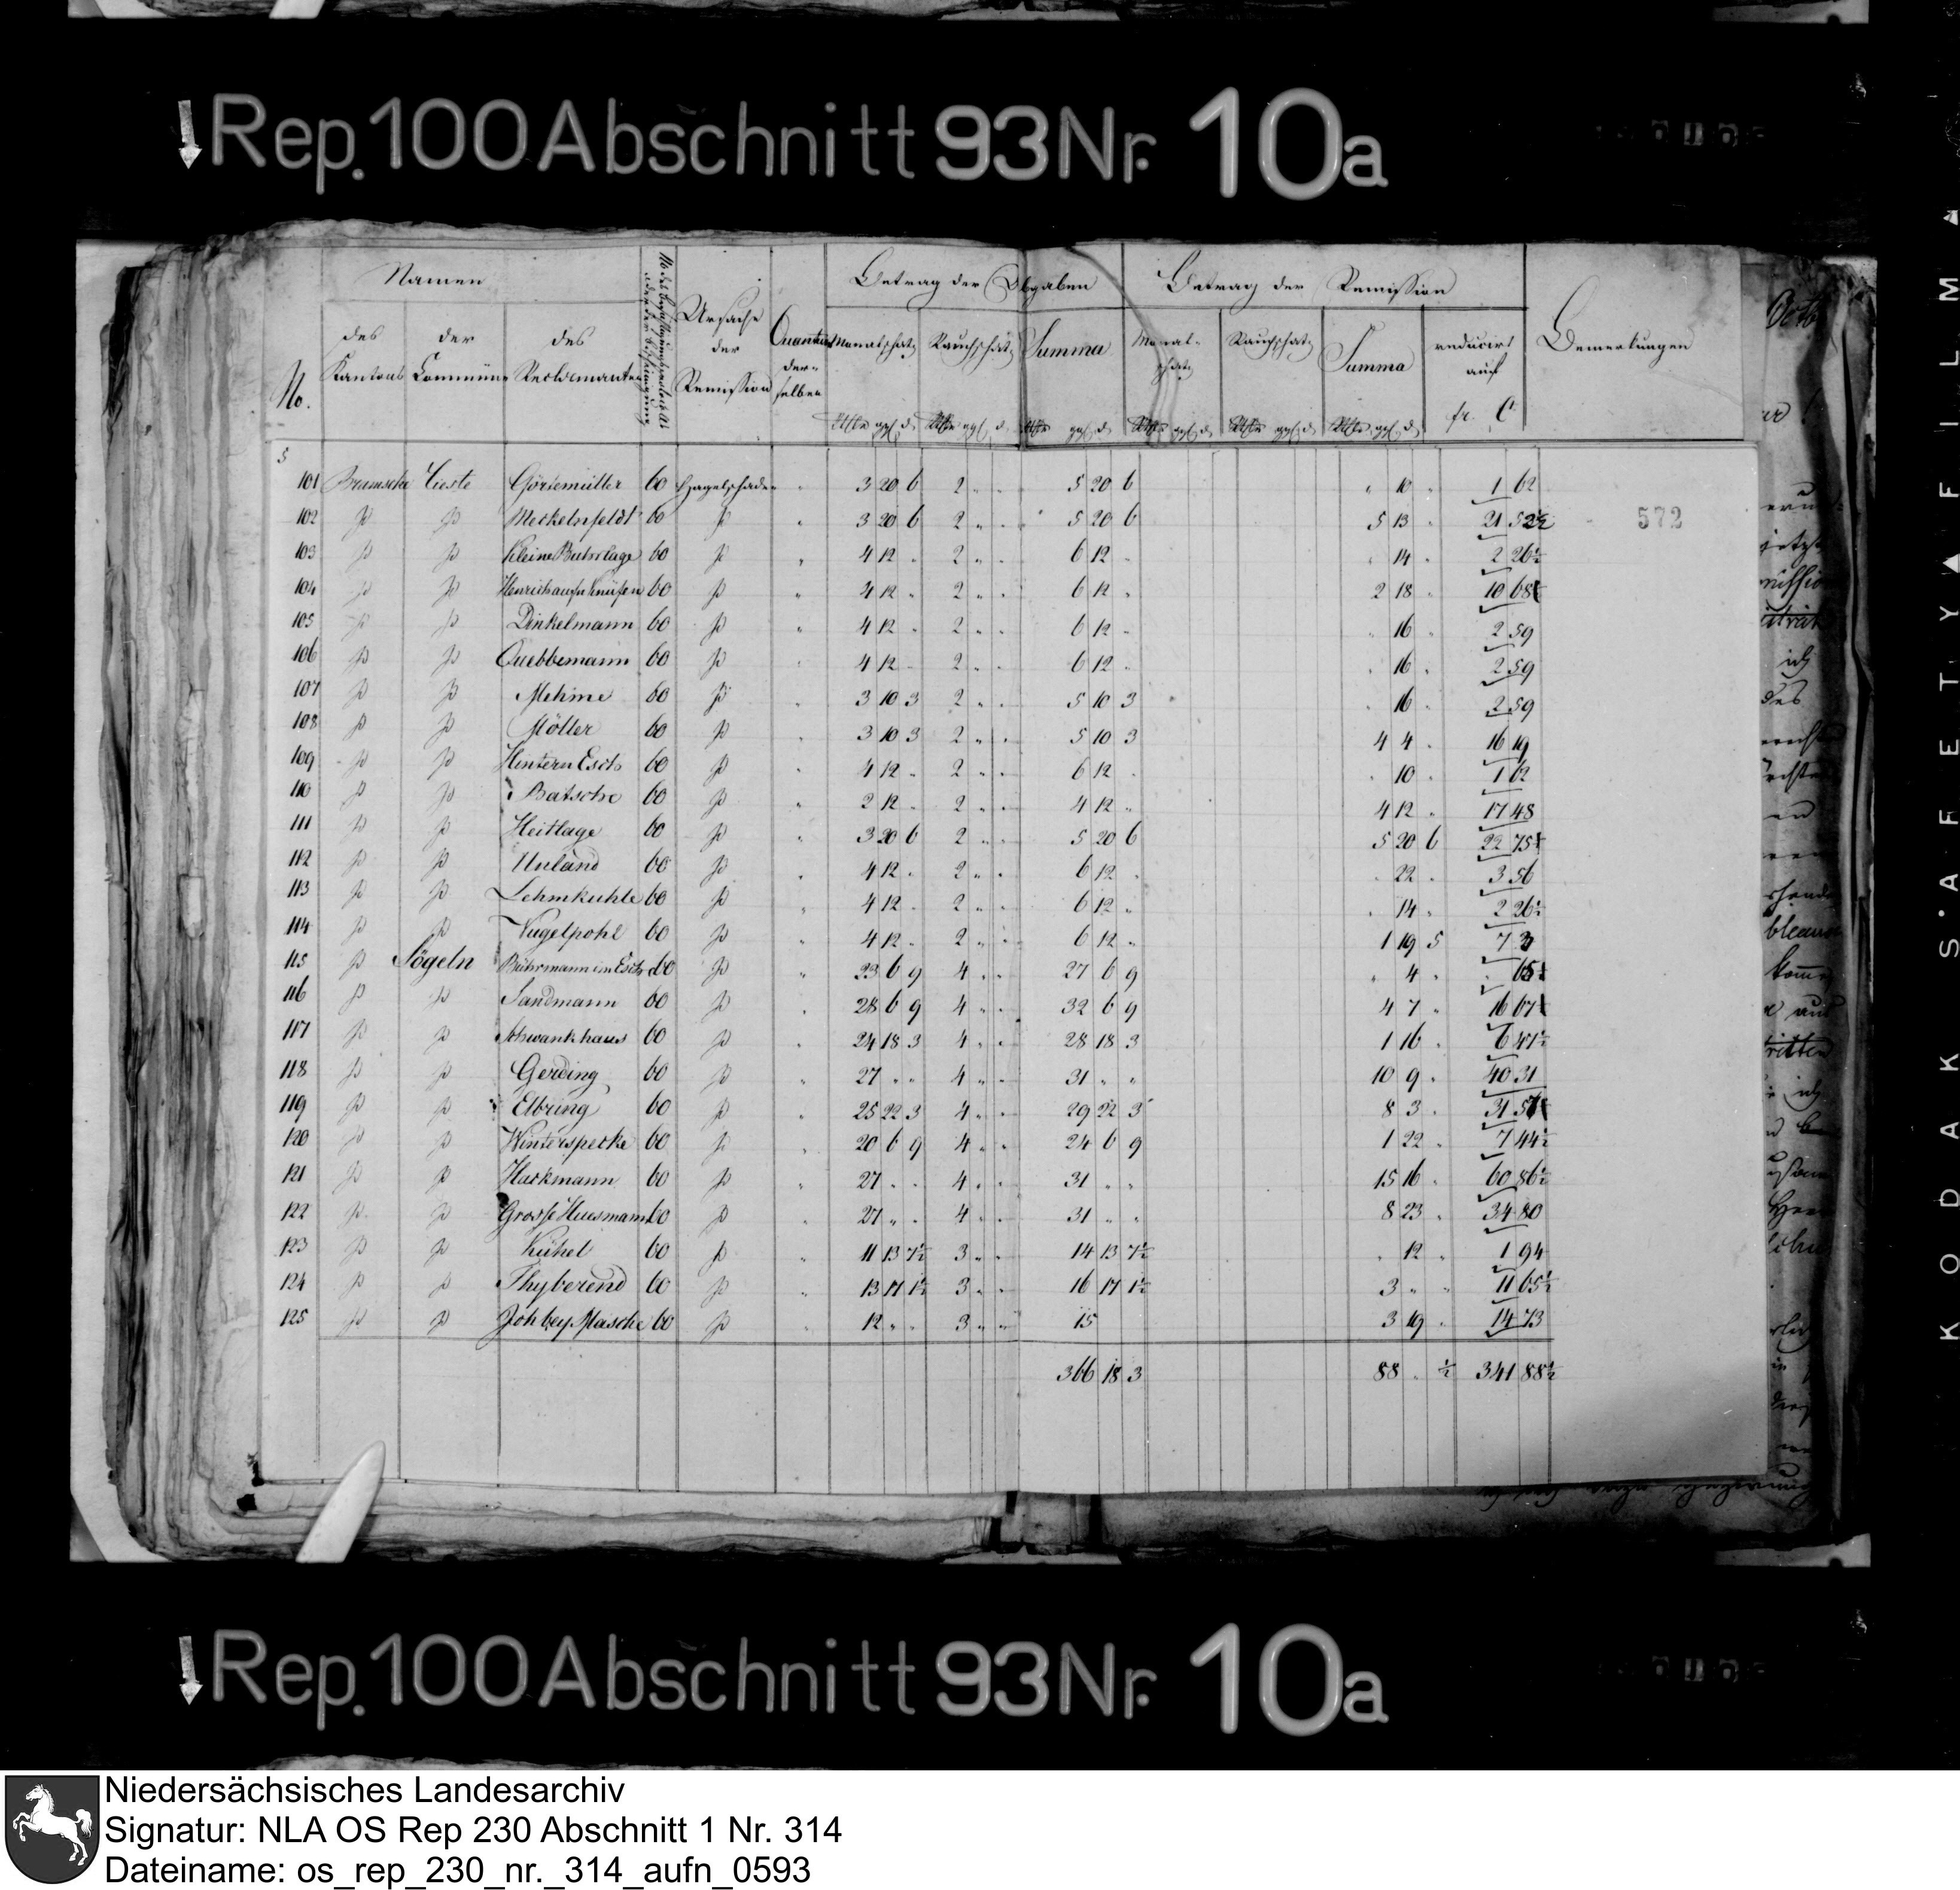 Rep. 100 Abschnitt 93 Nr. 10a
Namen
Betrag der Abgaben
Betrag der Remission
No.
des Kantons
der Commüne
des Reclamanten
Ursache der Remission
Quantum derselben
Monatschatz
Rauchschatz
Summa
Monatschatz
Rauchschatz
Summa
reducirt auf
fr. C.
Bemerkungen
5
101 Bramsche Tieste Görtemüller 60 Hagelschaden " 3 20 6 2 " " 5 20 6 " 10 " 1 62
102 p p Meckelnfeldt 60 p " 3 20 6 2 " " 5 20 6 5 13 " 21 52½
572
103 p p Kleine Buhrlage 60 p " 4 12 " 2 " " 6 12 " " 14 " 2 26½
104 p p 60 p " 4 12 " 2 " " 6 12 " 2 18 " 10 68
105 p p Dinkelmann 60 p " 4 12 " 2 " " 6 12 " " 16 " 2 59
106 p p Quebbemann 60 p " 4 12 " 2 " " 6 12 " " 16 " 2 59
107 p p Mehme 60 p " 3 10 3 2 " " 5 10 3 " 16 " 2 59
108 p p Möller 60 p " 3 10 3 2 " " 5 10 3 4 4 " 16 19
109 p p Hintern Esch 60 p " 4 12 " 2 " " 6 12 " " 10 " 1 62
110 p p Batsche 60 p " 2 12 " 2 " " 4 12 " 4 12 " 17 48
111 p p Heitlage 60 p " 3 20 6 2 " " 5 20 6 5 20 6 22 75
112 p p Unland 60 p " 4 12 " 2 " " 6 12 " " 22 " 3 56
113 p p Lehmkuhle 60 p " 4 12 " 2 " " 6 12 " " 14 " 2 26½
114 p p Kugelpohl 60 p " 4 12 " 2 " " 6 12 " 1 19 5 7 3
115 p Sögeln Buhrmann im Esch 60 p " 23 6 9 4 " " 27 6 9 " 4 " " 65
116 p p Sandmann 60 p " 28 6 9 4 " " 32 6 9 4 7 " 16 67
117 p p Schwankhaus 60 p " 24 18 3 4 " " 28 18 3 1 16 " 6 47½
118 p p Gerding 60 p " 27 " " 4 " " 31 " " 10 9 " 40 31
119 p p Elbring 60 p " 25 22 3 4 " " 29 22 3 8 3 " 31 57
120 p p Winterspecke 60 p " 20 6 9 4 " " 24 6 9 1 22 " 7 44½
121 p p Harkmann 60 p " 27 " " 4 " " 31 " " 15 16 " 60 86½
122 p p Grosse Huesmann 60 p " 27 " " 4 " " 31 " " 8 23 " 34 80
123 p p Kühel 60 p " 11 13 7½ 3 " " 14 13 7½ " 12 " 1 94
124 p p Thyberend 60 p " 13 17 1½ 3 " " 16 17 1½ 3 " " 11 65½
125 p p Joh bey Masche 60 p " 12 " " 3 " " 15 3 19 " 14 73
366 18 3 88 " ½ 341 88½
Rep. 100 Abschnitt 93 Nr. 10a
KODAK SAFETY FILM
Niedersächsisches Landesarchiv
Signatur: NLA OS Rep 230 Abschnitt 1 Nr. 314
Dateiname: os_rep_230_nr._314_aufn_0593